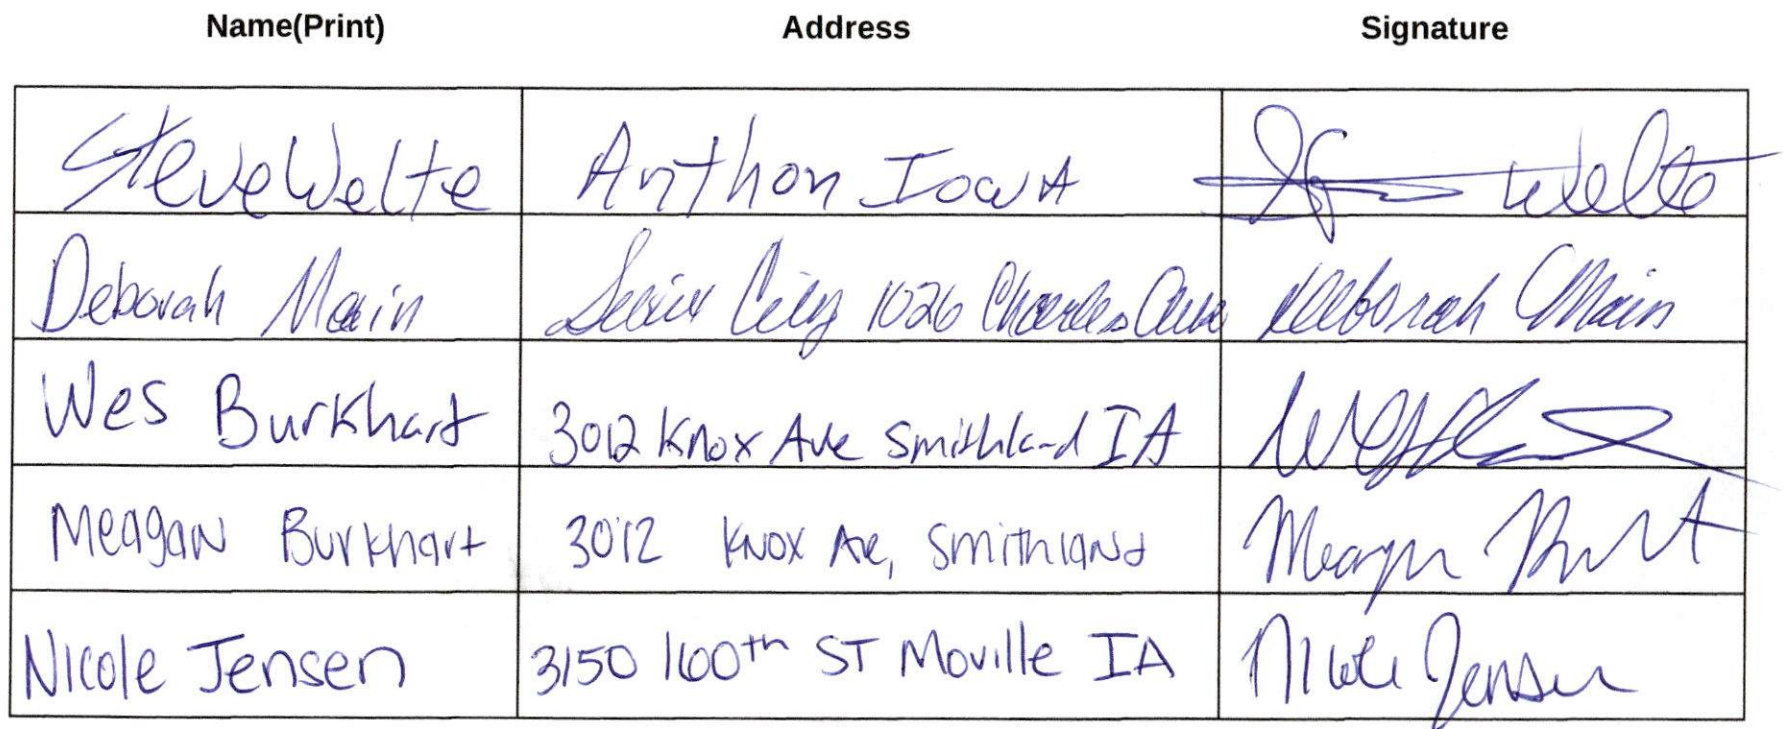 Name(Print) Address Signature
Steve Welte Anthon Iowa Steve Welte
Deborah Main Sioux City 1026 Charles Ave Deborah Main
Wes Burkhart 3012 Knox Ave Smithland IA
Meagan Burkhart 3012 Knox Ave, Smithland Meagan Burkhart
Nicole Jensen 3150 160th ST Moville IA Nicole Jensen